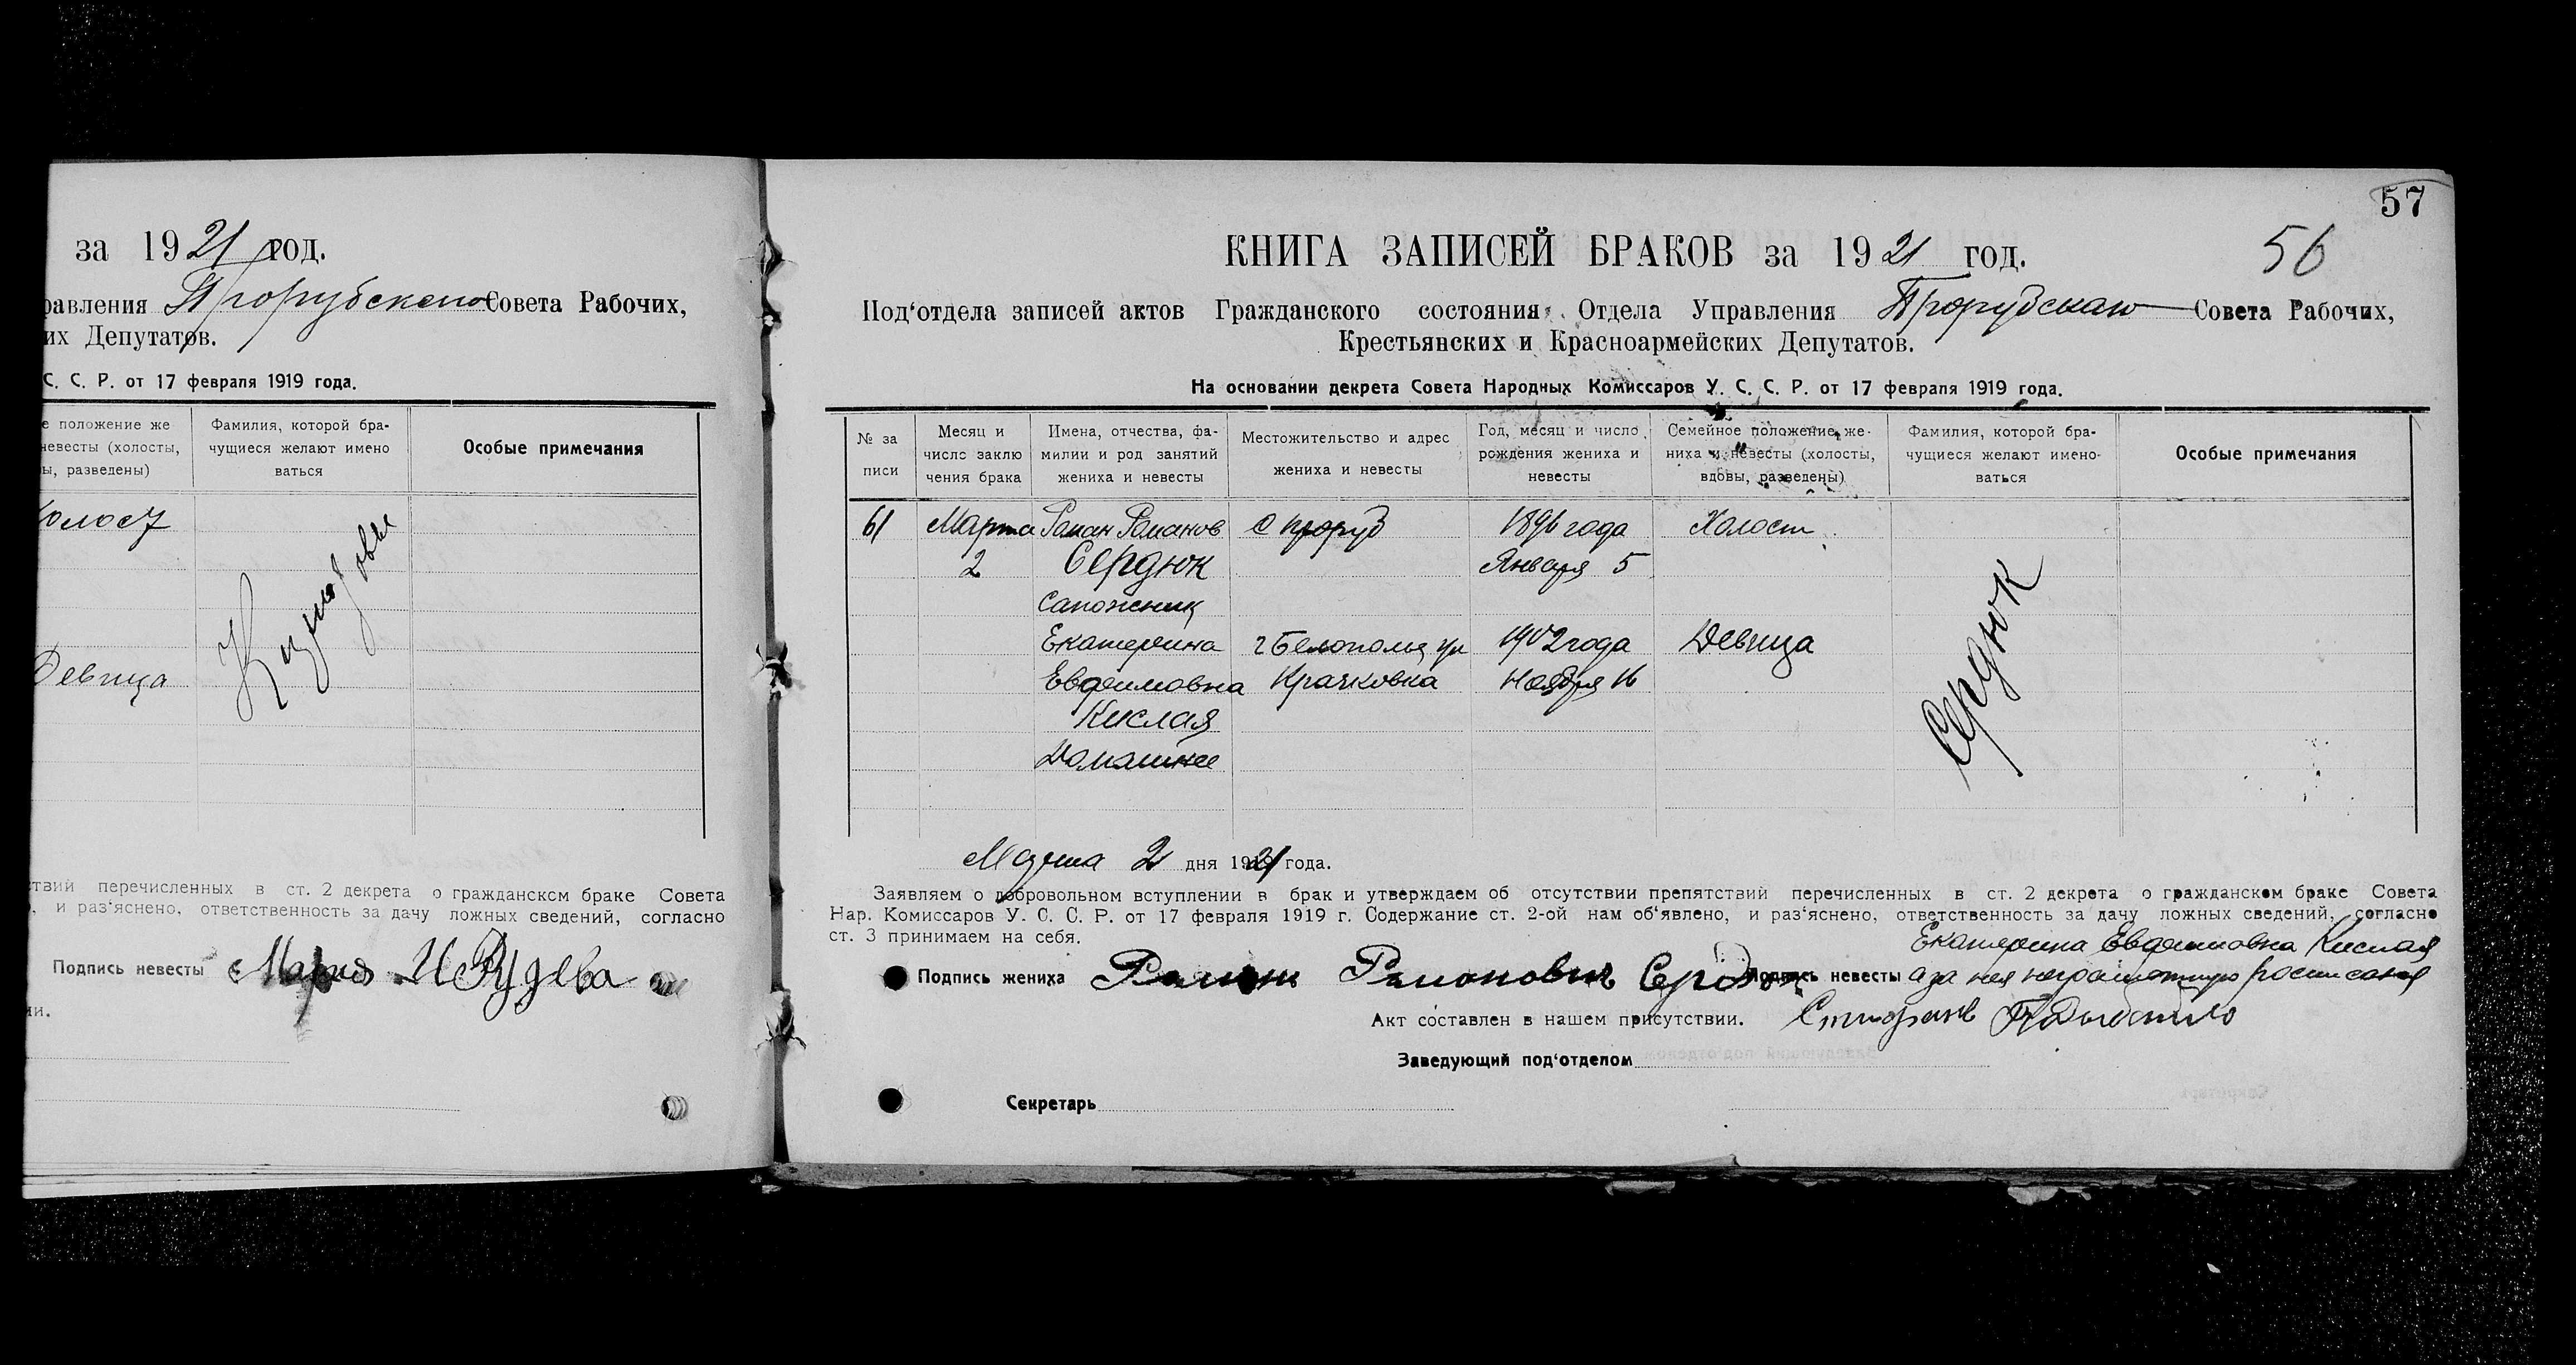 за 1921 год.
равления Прорубского Совета Рабочих,
их Депутатов.
С. С. Р. от 17 февраля 1919 года.
е положение же
невесты (холосты,
ы, разведены)
Фамилия, которой бра-
чущиеся желают имено
ваться
Особые примечания
холост
Девица
ствий перечисленных в ст. 2 декрета о гражданском браке Совета
, и раз'яснено, ответственность за дачу ложных сведений, согласно
Подпись невесты Мария
ии.
57
56
КНИГА ЗАПИСЕЙ БРАКОВ за 1921 год.
Под'отдела записей актов Гражданского состояния Отдела Управления Прорубскаго Совета Рабочих,
Крестьянских и Красноармейских Депутатов.
На основании декрета Совета Народных Комиссаров У. С. С. Р. от 17 февраля 1919 года.
№ за
писи
Месяц и
число заклю
чения брака
Имена, отчества, фа-
милии и род занятий
жениха и невесты
Местожительство и адрес
жениха и невесты
Год, месяц и число
рождения жениха и
невесты
Семейное положение же-
ниха и невесты (холосты,
вдовы, разведены)
Фамилия, которой бра-
чущиеся желают имено-
ваться
Особые примечания
61 Марта Роман Романов с проруб 1896 года Холост
2 Сердюк Января 5
Сапожник
Екатерина г Белополье ул 1902 года Девица
Евдокимовна Крачковка Ноября 16
Кислая
Домашнее
Сердюк
Марта 2 дня 1921 года.
Заявляем о добровольном вступлении в брак и утверждаем об отсутствии препятствий перечисленных в ст. 2 декрета о гражданском браке Совета
Нар. Комиссаров У. С. С. Р. от 17 февраля 1919 г. Содержание ст. 2-ой нам об'явлено, и раз'яснено, ответственность за дачу ложных сведений, согласно
ст. 3 принимаем на себя.
Екатерина Евдокимовна Кислая
Подпись жениха Роман Романович Сердюк Подпись невесты а за нея неграмотную
Акт составлен в нашем присутствии.
Заведующий под'отделом
Секретарь